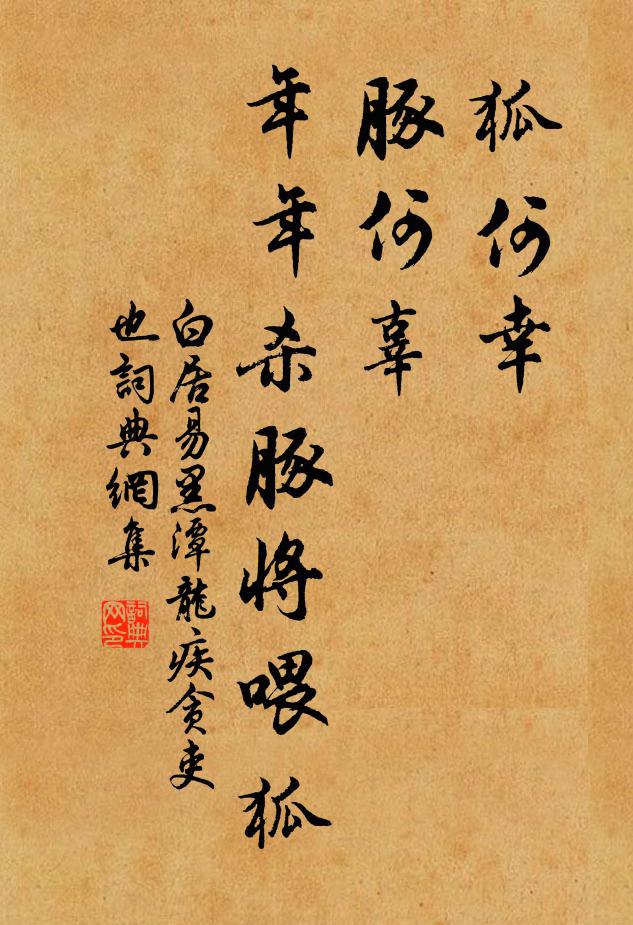 狐何幸
豚何辜
年年杀豚将喂狐
白居易黑潭龍疾贪吏
也詞典網集
詞典网印